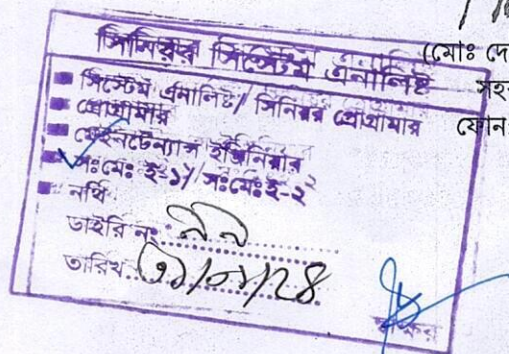 সিনিয়র সিস্টেম এনালিষ্ট
(মোঃ দে
সহ
ফোন
■ সিস্টেম এনালিষ্ট/ সিনিয়র প্রোগ্রামার
■ প্রোগ্রামার
■ মেইনটেন্যান্স ইঞ্জিনিয়ার
■ সঃমেঃ ই-১/ সঃমেঃই-২
■ নথি
ডাইরি নং
তারিখ
স্বাক্ষর